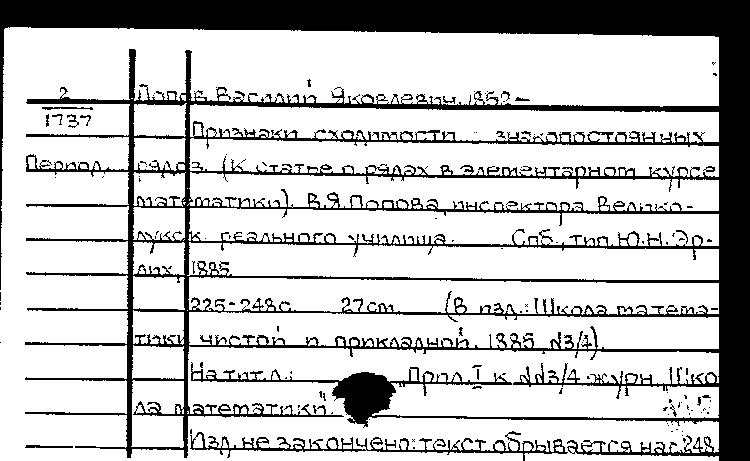 2
1737
Период.
Попов, Василий Яковлевич, 1852-
Признаки сходимости знакопостоянных
рядов. (К статье о рядах в элементарном курсе
математики). В.Я. Попова, инспектора Велико-
лукск. реального училища. Спб., тип. Ю.Н. Эр-
лих, 1885.
225-248 с. 27 см. (В изд.: Школа матема-
тики чистой и прикладной. 1885, №3/4).
На тит. л.: "Прил. I к №№3/4 журн. "Шко
ла математики".
Изд. не закончено: текст обрывается на с. 248